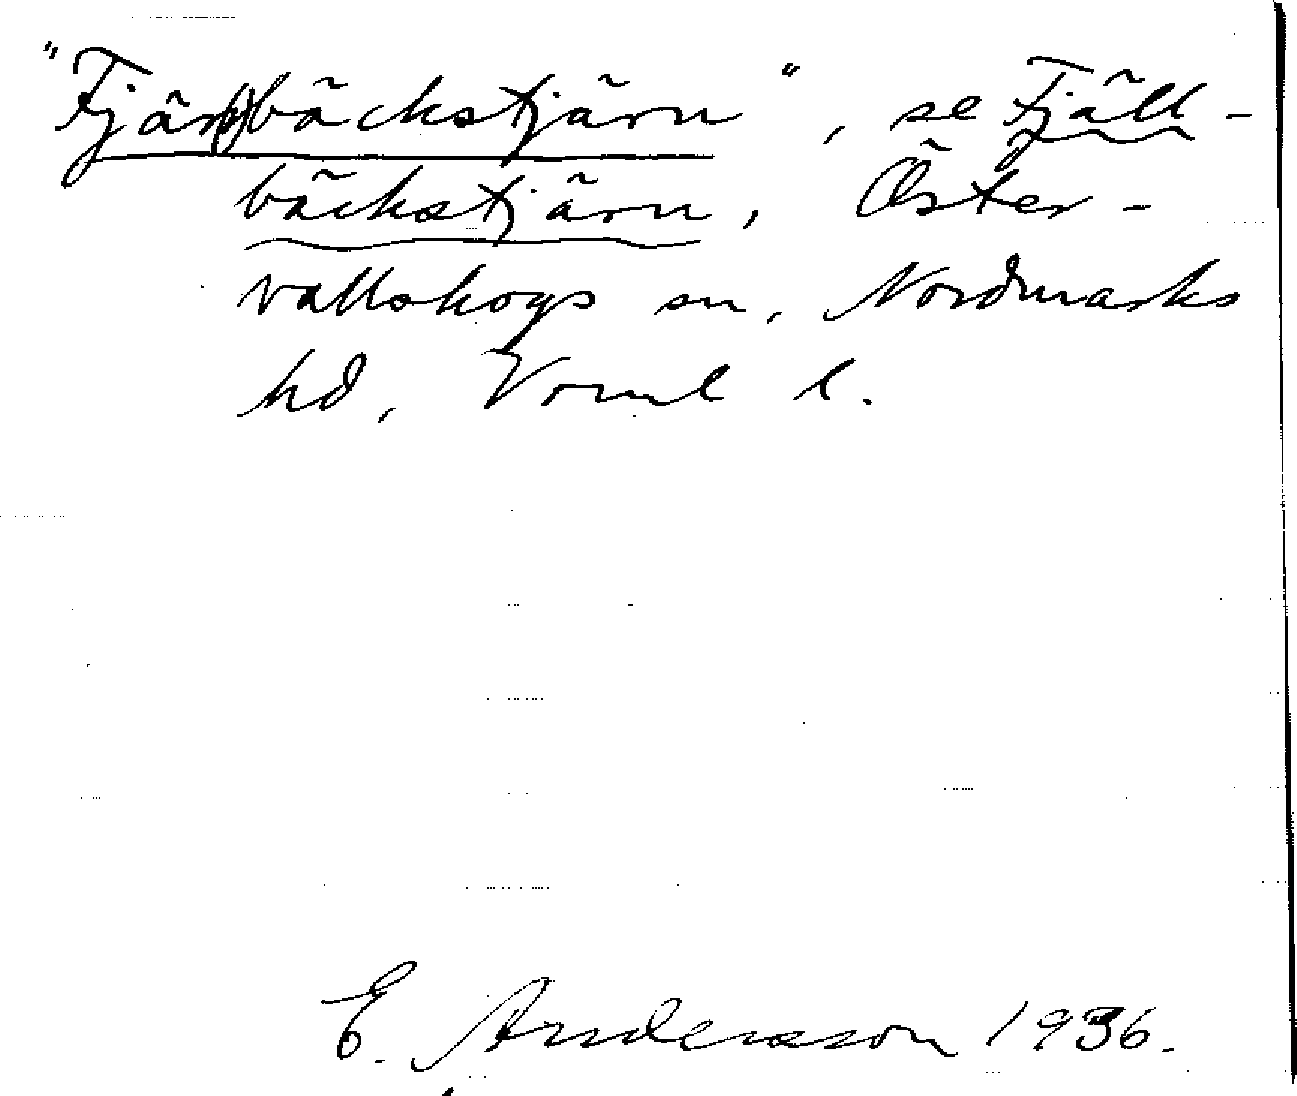 "Fjär(l)bäckstjärn", se Fjäll-
bäckstjärn, Öster-
vallskogs sn, Nordmarks
hd, Vorml l.
E. Andersson 1936.